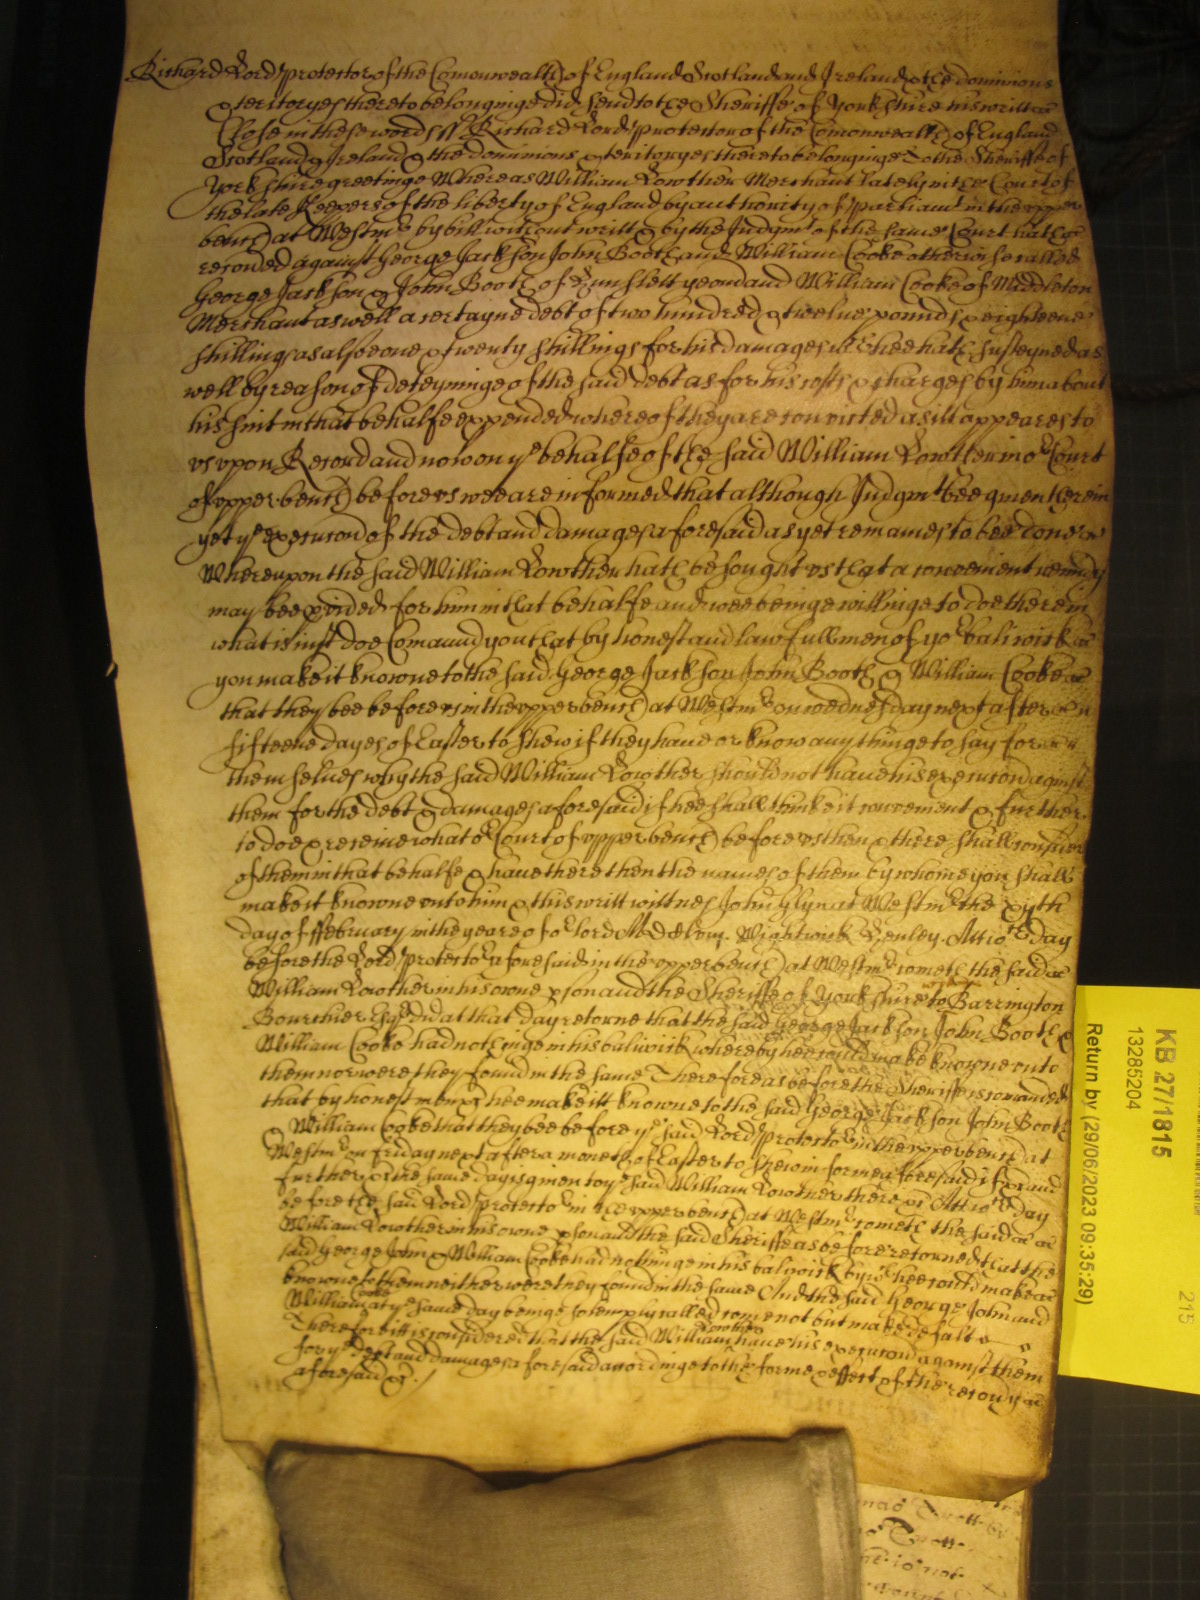 Richard Lord protector of the Comonwealth of England Scotland and Ireland & the dominions
& teritoryes thereto belonginge did send to the Sheriffe of Yorkshire his writt
Close in these words ss Richard Lord protector of the Comonwealth of England
Scotland & Ireland & the dominions & teritoryes thereto belonginge To the Sheriffe of
Yorkshire greetinge Whereas William Lowther Merchant lately in the Court of
the late Keepers of the liberty of England by authority of parliamt in the upper
bench at Westmr by bill without writt & by the Judgmt of the same Court hath
recovered against George Jackson John Booth and William Cooke otherwise called
George Jackson & John Booth of yeom and William Cooke of Middleton
Merchant aswell a certayne debt of two hundred & twelve pounds & eighteene
shillings as alsoe one & twenty shillings for his damages wch hee hath susteyned as
well by reason of deteyninge of the said debt as for his costs & charges by him about
his suit in that behalfe expended whereof they are convicted as itt appeares to
us upon Record and now on ye behalfe of the said William Lowther in or Court
of upper bench before us wee are informed that although Judgmt bee given therein
yet ye execucon of the debt and damages aforesaid as yet remaines to bee done
Whereupon the said William Lowther hath besought us that a convenient remedy
may bee pvided for him in that behalfe and wee beinge willinge to doe therein
what is just doe Comaund you that by honest and lawfull men of yor baliwick
you make it knowne to the said George Jackson John Booth & William Cooke
that they bee before us in the upper bench at Westmr on wednesday next after
fifteene dayes of Easter to shew if they have or know any thinge to say for
themselves why the said William Lowther should not have his execucon against
them for the debt & damages aforesaid if hee shall thinke it convenient & further
to doe & receive what or Court of upper bench before us then & there shall consider
of them in that behalfe & have there then the names of them by whome you shall
make it knowne unto him & this writt wittnes John Glyn at Westmr the
day of ffebruary in the yeare of or lord Wightwick Henley. Att wch day
before the Lord protector aforesaid in the upper bench at Westmr cometh the said
William Lowther in his owne pson and the Sheriffe of Yorkshire to witt Barrington
Bourchier Esqr did at that day retorne that the said George Jackson John Booth &
William Cooke had nothinge in his baliwick whereby hee could make knowne unto
them nor were they found in the same Therefore as before the Sheriffe is comanded
that by honest men &c hee make itt knowne to the said George Jackson John Booth
& William Cooke that they bee before ye said Lord protector in the upper bench at
Westmr on friday next after a moneth of Easter to shew in forme aforesaid if &c and
further &c the same day is given to ye said William Lowther there &c Att wch day
before the said Lord protector in the upper bench at Westmr cometh the said
William Lowther in his owne pson and the said Sheriffe as before retorned that the
said George John & William Cooke had nothinge in his baliwick by wch hee could make
knowne to them neither were they found in the same And the said George John and
William Cooke at ye same day beinge solempnly called come not but make default
Therefore itt is considered that the said William Lowther have his execucon against them
for ye debt and damages aforesaid accordinge to the forme & effect of the recovery
aforesaid &c.
KB 27/1815
13285204
Return by (29/06/2023 09:35:29)
215